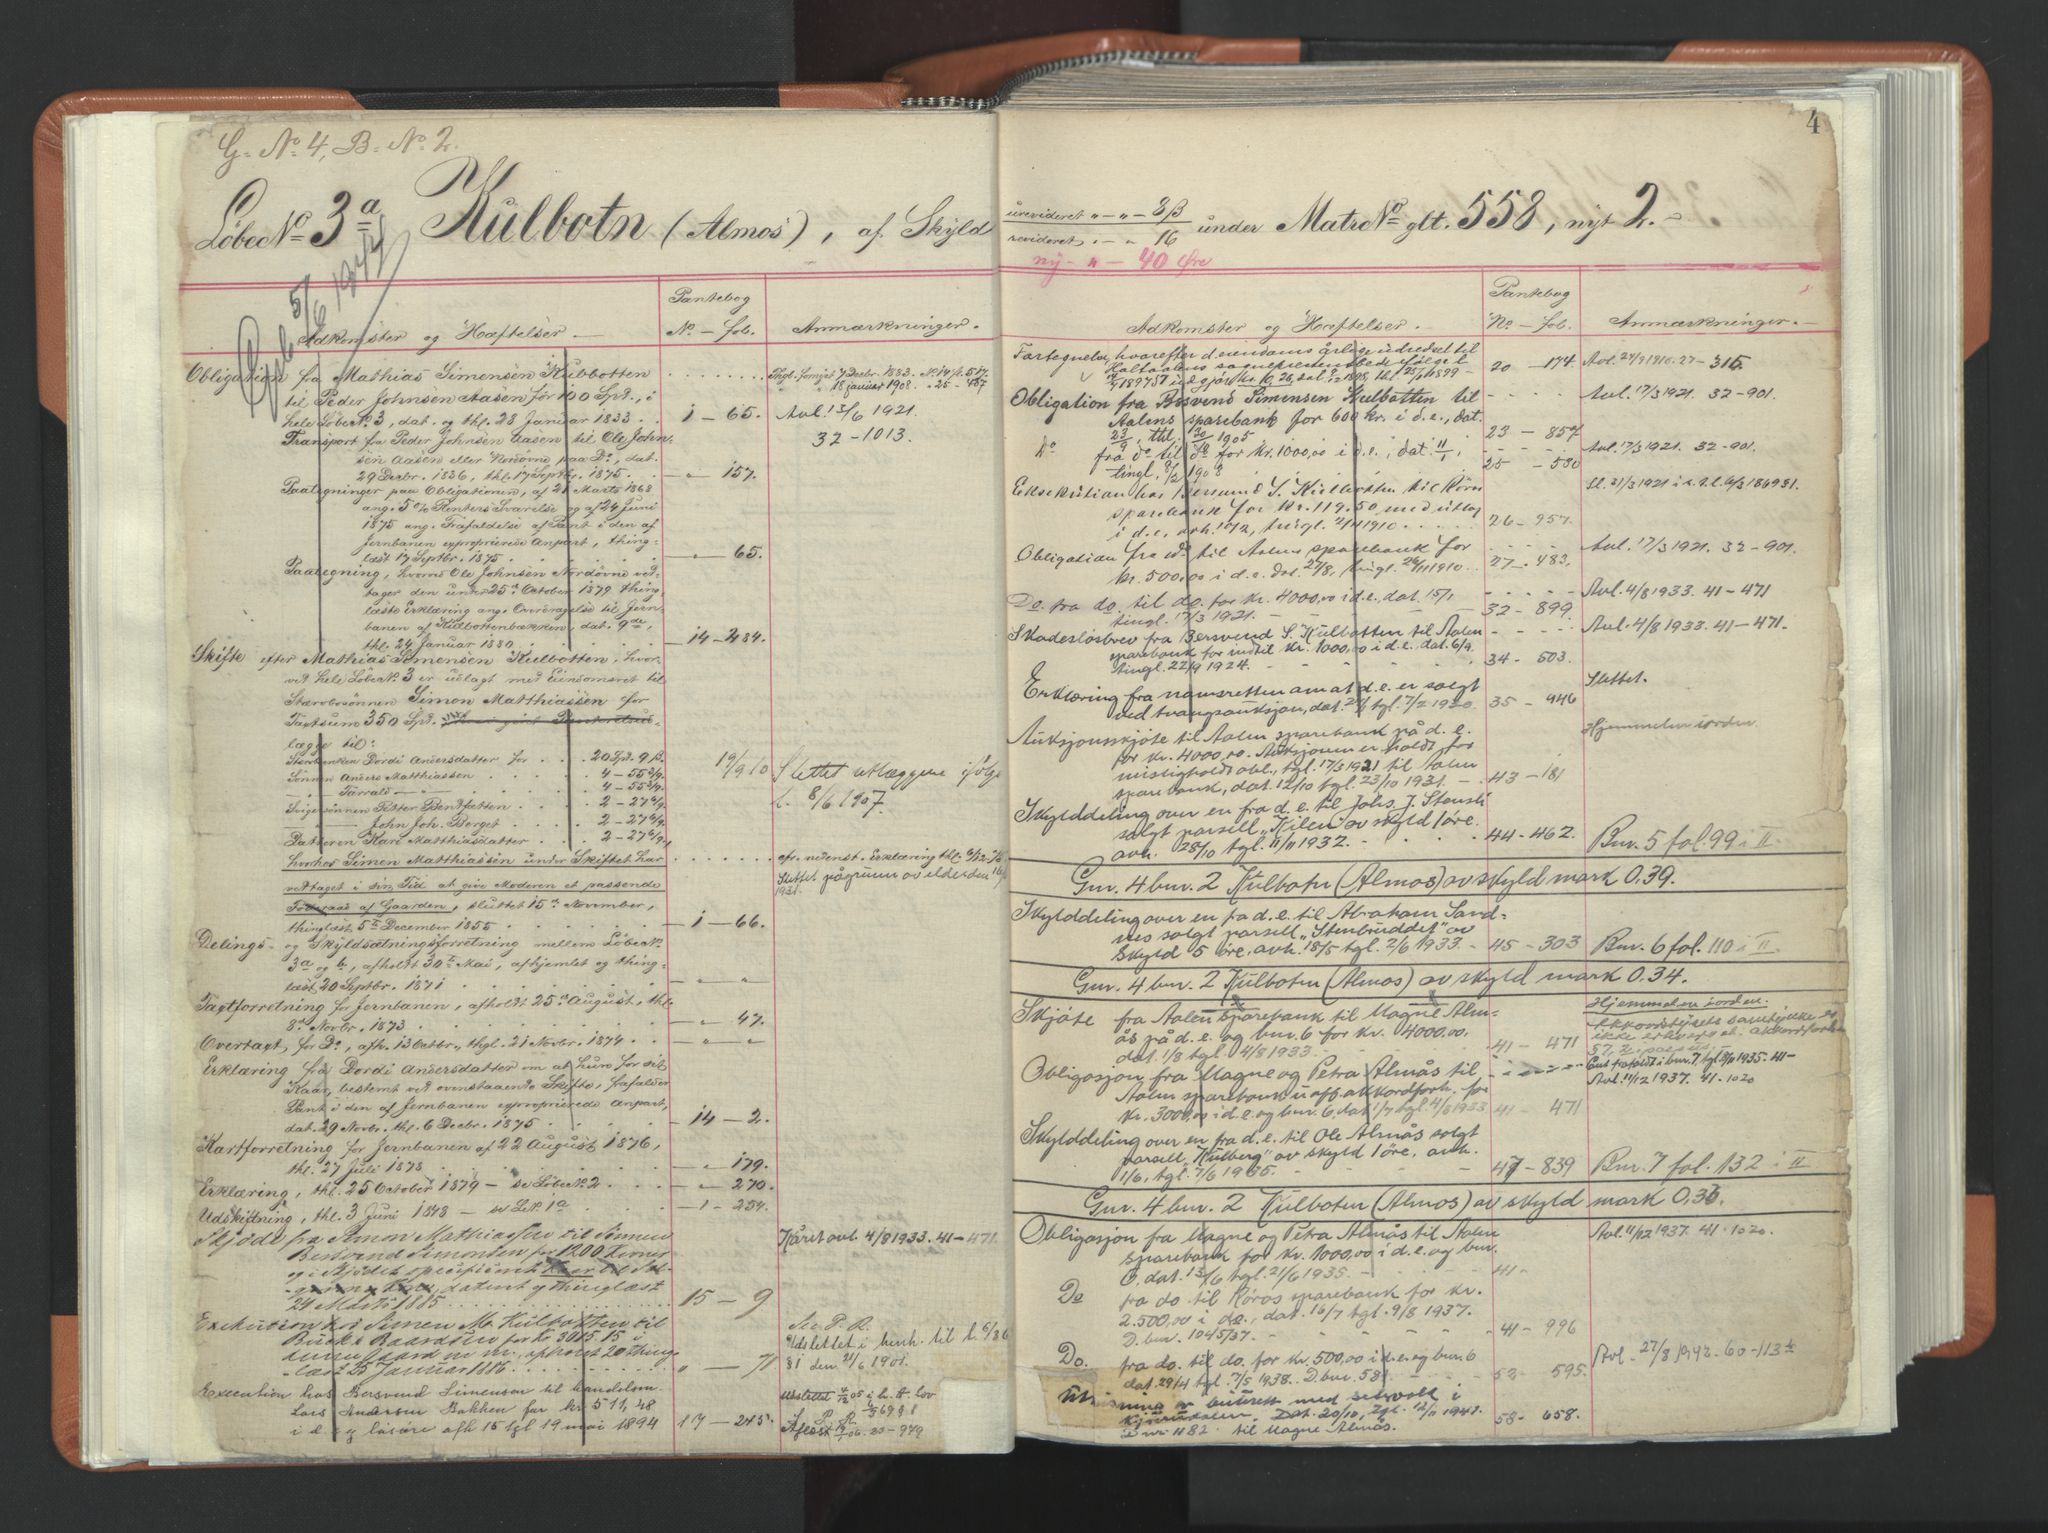 G. No 4, B. No 2.
Løbe No 3a Kulbotn (Almos), af Skyld
Adkomster og Hæftelser. Pantebog No - fol. Anmærkninger.
Obligation fra Mathias Simensen Kulbotten
til Peder Johnsen Aasen for 100 Spd., i
hele Løbe No 3, dat. og thl. 28 Januar 1833. 1 - 65. Avl. 13/6 1921.
32 - 1013.
Transport fra Peder Johnsen Aasen til Ole John-
sen Aasen eller Nordøvne paa Do, dat.
29 Decbr. 1836, thl. 17 Septbr. 1875 - " - 157.
Paategninger paa Obligationen, af 21 Marts 1868
ang. 5 % Renters Svarelse og af 24 Juni
1875 ang. Frafaldelse af Pant i den af
Jernbanen exproprierede Anpart, thing-
læst 17 Septbr. 1875 - " - 65.
Paategning, hvorved Ole Johnsen Nordøvne ved-
tager den under 25de October 1879 thing-
læste Erklæring ang. Overdragelse til Jern-
banen af Kulbottenbækken, dat. 9de,
thl. 24 Januar 1880 14 - 284.
Skifte efter Mathias Simensen Kulbotten, hvor-
ved hele Løbe No 3 er udlagt med Eiendomsret til
Stærbosønnen Simon Matthiassen for
Taxtsum 350 Spd.
lægge til:
Sterbenken Dordi Andersdatter for 20 Spd. 9 ß.
Sønnen Anders Matthiassen 4 - 55 3/7.
- " - Tarrald - " - 4 - 55 3/7.
Svigersønnen Petter Bendtsen 2 - 27 6/7.
- " - John Joh. Berget 2 - 27 6/7.
Datteren Kari Matthiasdatter 2 - 27 6/7.
19/9 10 Slettet utlæggene ifølge
l. 8/6 1907.
hvorhos Simen Matthiassen under Skiftet har
vedtaget i sin Tid at give Moderen et passende
Føderaad af Gaarden, sluttet 15de November,
thinglæst 5te December 1855 1 - 66.
Delings- og Skyldsætningsforretning mellem Løbe No
3a og b, afholdt 30te Mai, afhjemlet og thing-
læst 20 Septbr. 1871 - " - "
Taxtforretning for Jernbanen, afholdt 25de August, thl.
8de Novbr. 1873 - " - 47.
Overtaxt for Do, afh. 13 Octbr., thgl. 21 Novbr. 1874 - " - "
Erklæring fra Dordi Andersdatter om at hun for sit
Kaar, bestemt ved ovenstaaende Skifte, frafalder
Pant i den af Jernbanen exproprierede Anpart,
dat. 29 Novbr. thl. 6 Decbr. 1875 14 - 2.
Kartforretning for Jernbanen af 22 August 1876,
thl. 27 Juli 1878 - " - 179.
Erklæring, thl. 25 October 1879 - se Løbe No 2 - " - 270.
Udskiftning, thl. 3 Juni 1878 - se L. No 1a - 1 - 254.
Skjøde fra Simon Mathiassen til Sønnen
Bersvend Simonsen for 1200 Kroner
og i Skjødet specificeret Kaar
datert og thinglæst
24 Marts 1885 15 - 9
Kåret avl. 4/8 1933. 41 - 471.
Execution hos Simen M. Kulbotten til
Baardsen for Kr. 3015.15 i
denne Gaard
læst 25 Januar 1886 " - 71
Udslettet i henh. til l. 6/3 6
81 den 21/6 1901.
Execution hos Bersvend Simensen til handelsm.
Lars Andersen Bakken for kr 511,48
i d. e. og løsøre afh 15 tgl 19 mai 1894 17 - 245.
Aflæst 20 - 979
4
urevideret " - " - 3 ß
revideret " - " 16
under Matr No glt. 558, nyt 2.
ny - " - 40 Øre
Adkomster og Hæftelser. Pantebog No - fol. Anmærkninger.
20 - 174 Avl. 24/9 1910. 27 - 315
Obligation fra Bersvend Simensen Kulbotten til
Aalens sparebank for 600 kr. i d. e., dat.
23/9, thl. 30/10 1905 23 - 857 Avl. 17/3 1921. 32 - 901.
Do fra do til do for kr. 1000,00 i d. e., dat. 11/1,
tingl. 8/2 1908 25 - 580 Avl. 17/3 1921. 32 - 901.
Eksekution hos Bersvend S. Kulbotten til Røros
sparebank for kr. 119.50 med utlæg
i d. e. 26 - 957.
Obligation fra do til Aalens sparebank for
kr. 500,00 i d. e. dat. 27/8, tingl. 24/11 1910. 27 - 483. Avl. 17/3 1921. 32 - 901.
Do. fra do. til do. for kr. 4000,00 i d. e. dat. 15/1
tingl. 17/3 1921. 32 - 899. Avl. 4/8 1933. 41 - 471
Skadesløsbrev fra Bersvend S. Kulbotten til Aalen
sparebank for indtil kr. 1000,00 i d. e. dat. 6/9
tingl. 22/9 1924. 34 - 503. Avl. 4/8 1933. 41 - 471.
Erklæring fra namsretten om at d. e. er solgt
ved tvangsauksjon, 35 - 946 Slettet.
Auksjonsskjøte til Aalen sparebank på d. e.
for kr. 4000,00. Auksjonen er holdt for
misligholdt obl., tgl. 17/3 1921 til Aalen
sparebank, dat. 12/10 tgl. 23/10 1931. 43 - 181 Hjemmelen iorden.
Skylddeling over en fra d. e. til Johs. J. Stensli
solgt parsell "Kilen" av skyld 1 øre.
avh. 28/10 tgl. 11/11 1932. 44 - 462. Bnr. 5 fol. 99 i II.
Gnr. 4 bnr. 2 Kulbotn (Almos) av skyld mark 0.39.
Skylddeling over en fra d. e. til Abraham Sand-
nes solgt parsell, "Stenbruddet" av
skyld 5 øre, avh. 18/5 tgl. 2/6 1933. 45 - 303 Bnr. 6 fol. 110 i II
Gnr. 4 bnr. 2 Kulbotn (Almos) av skyld mark 0.34.
Skjøte fra Aalen sparebank til Magne Alm-
ås på d. e. og bnr. 6 for kr. 4000,00.
dat. 1/8 tgl. 4/8 1933. 41 - 471 Hjemmelen iorden.
Obligasjon fra Magne og Petra Almås til
Aalen sparebank u/off. akkordforh. for
kr. 3000,00 i d. e. og bnr. 6, dat. 1/7 tgl. 4/8 1933 41 - 471
Avl. 11/12 1937. 41 - 1020
Skylddeling over en fra d. e. til Ole Almås solgt
parsell "Kulberg" av skyld 1 øre, avh.
1/6, tgl. 7/6 1935. 47 - 839 Bnr. 7 fol. 132 i II
Gnr. 4 bnr. 2 Kulbotn (Almos) av skyld mark 0.33.
Obligasjon fra Magne og Petra Almås til Aalen
sparebank for kr. 1000,00 i d. e. og bnr.
6, dat. 13/6 tgl. 21/6 1935. 41 - Avl. 11/12 1937. 41 - 1020.
Do fra do til Røros sparebank for kr.
2.500,00 i d. e., dat. 16/7 tgl. 9/8 1937.
D. bnr. 1045/37. 41 - 996
Do. fra do. til do. for kr. 500,00 i d. e. og bnr. 6
dat. 29/4 tgl. 7/5 1938. D. bnr. 581 52 - 595. Avl. 27/8 1942. 60 - 113
av bruksrett med setervoll i
Dat. 20/10, tgl. 12/11 1941.
1182 til Magne Almås. 58 - 658.